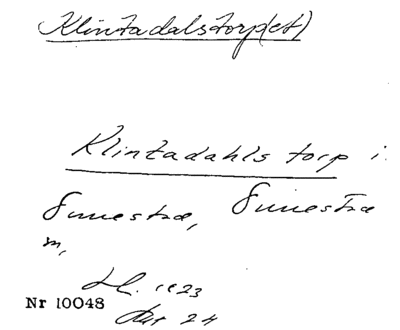 Klintadalstorp(et)
Klintadahls torp i
Simestræ, Simestræ
m,
H. 1823
Nr 10048
24